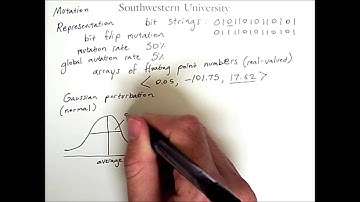 Mutation
Southwestern University
Representation bit strings: 0101101011010 1
bit flip mutation 0111101010101
mutation rate 50%
global mutation rate 5%
arrays of floating point numbers (real-valued)
< 0.05, -101.75, 17.62 >
Gaussian perturbation
(normal)
average